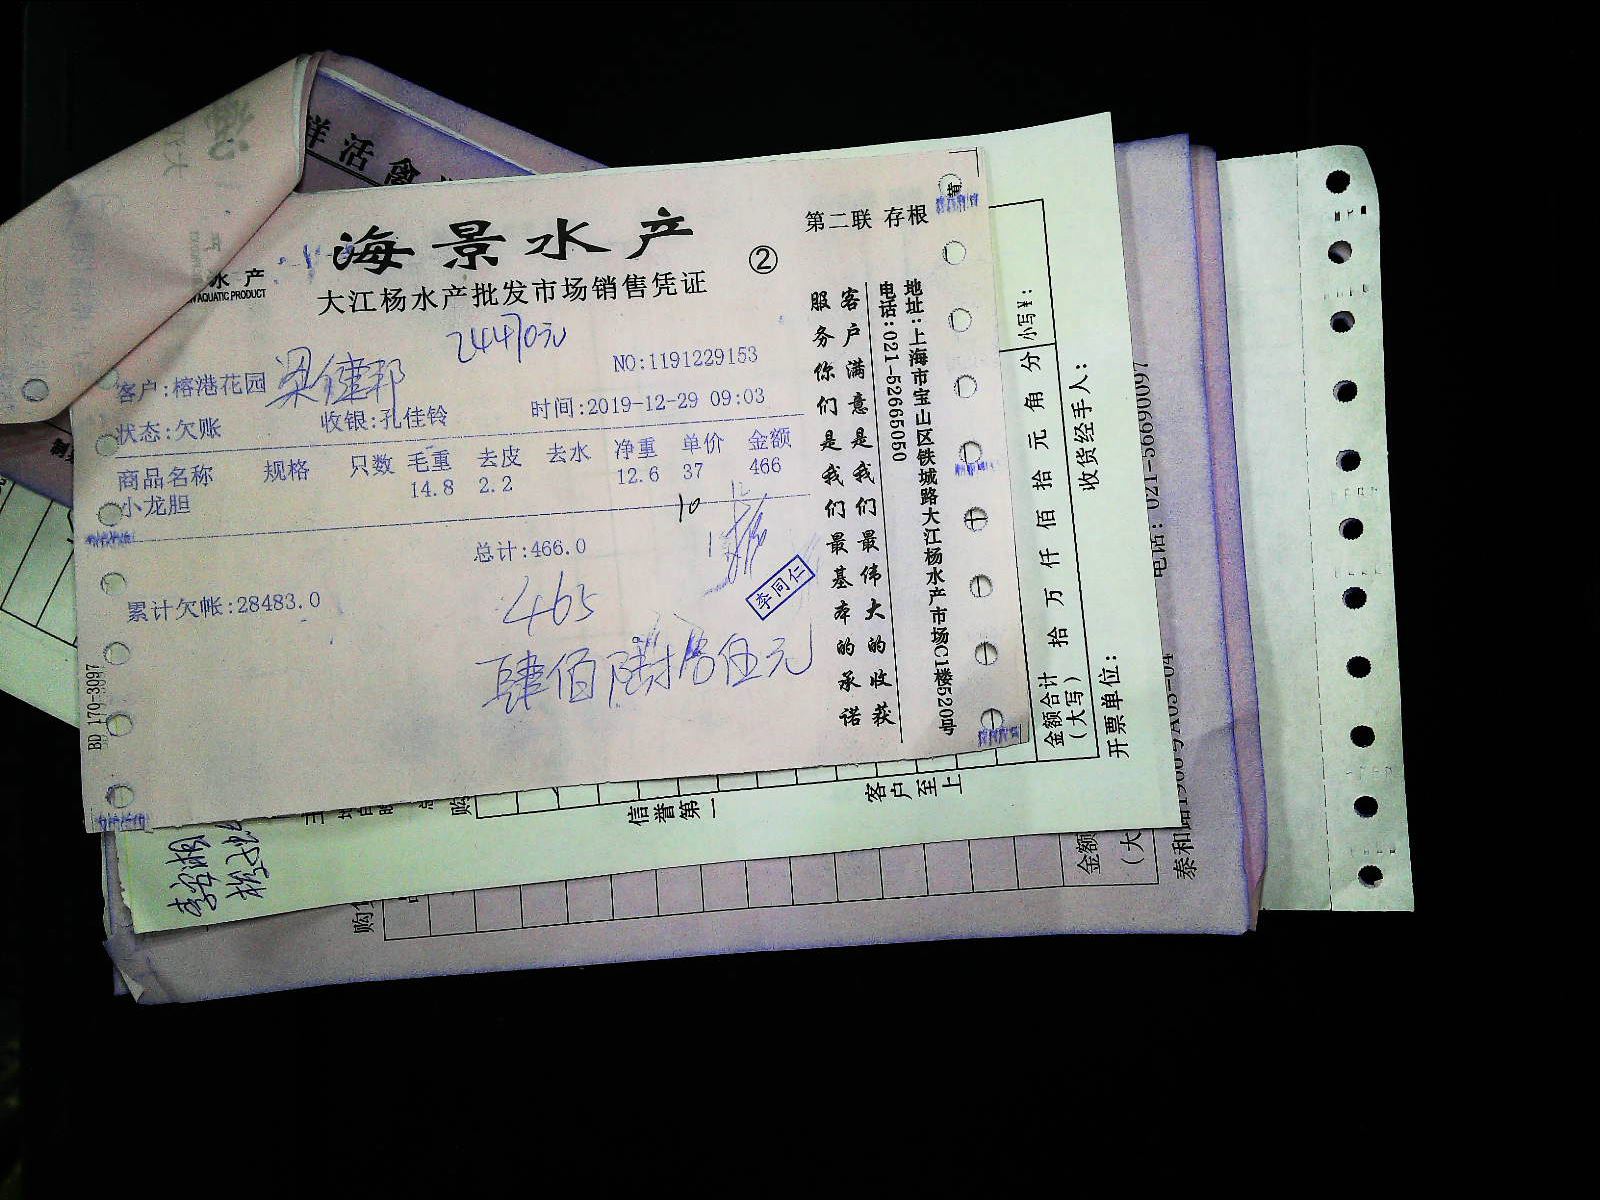 海景水产
大江杨水产批发市场销售凭证
②
第二联 存根
24470元
NO:1191229153
客户:榕港花园
梁健邦
状态:欠账 收银:孔佳铃 时间:2019-12-29 09:03
商品名称 规格 只数 毛重 去皮 去水 净重 单价 金额
小龙胆 14.8 2.2 12.6 37 466
10
总计:466.0
累计欠帐:28483.0
465
肆佰陆拾伍元
李同仁
客户满意是我们最伟大的收获
服务你们是我们最基本的承诺
地址:上海市宝山区铁城路大江杨水产市场C1楼520号
电话:021-52665050
BD 170-3097
水产
AQUATIC PRODUCT
鲜活禽
金额合计(大写) 拾 万 仟 佰 拾 元 角 分 小写¥:
开票单位: 收货经手人:
信誉第一
客户至上
购
李湘
金额
(大
电话: 021-56690097